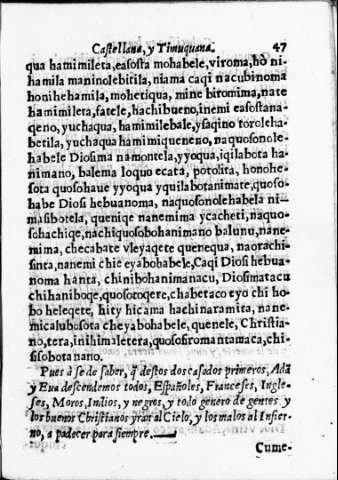 Castellana, y Timuquana. 47
qua hamimileta, easosta mohabele, viroma, hò ni-
hamila maninolebitila, niama caqi nacubinoma
honihehamila, mohetiqua, mine biromima, nate
hamimileta, fatele, hachibueno, inemi easostana-
qeno, yuchaqua, hamimilebale, ysaqino toroleha-
betila, yuchaqua hamimiqueneno, naquosonole-
habele Diosima namontela, yyoqua, iqilabota ha-
nimano, balema loquo ecata, potolita, honohe-
sota quosohaue yyoqua yquilabotanimate, quoso-
habe Diosi hebuanoma, naquosonolehabela ni-
masibotela, queniqe nanemima ycacheti, naquo-
sohachiqe, nachiquosobohanimano balunu, nane-
mima, checabate vleyaqete quenequa, naorachi-
sinta, nanemi chie eyabohabele, Caqi Diosi hebua-
noma hanta, chinibohanimanacu, Diosimatacu
chihaniboqe, quosotoqere, chabetaco eyo chi ho-
bo heleqete, hity hicama hachinaramita, nane-
micalubosota cheyabohabele, quenele, Christia-
no, tera, inihimaletera, quosofiromantamaca, chi-
sisobotanano.
Pues à se de saber, q̃ destos dos casados primeros, Adã
y Eua descendemos todos, Españoles, Franceses, Ingle-
ses, Moros, Indios, y negros, y todo genero de gentes y
los buenos Christianos yran al Cielo, y los malos al Infier-
no, a padecer para siempre.
Cume-